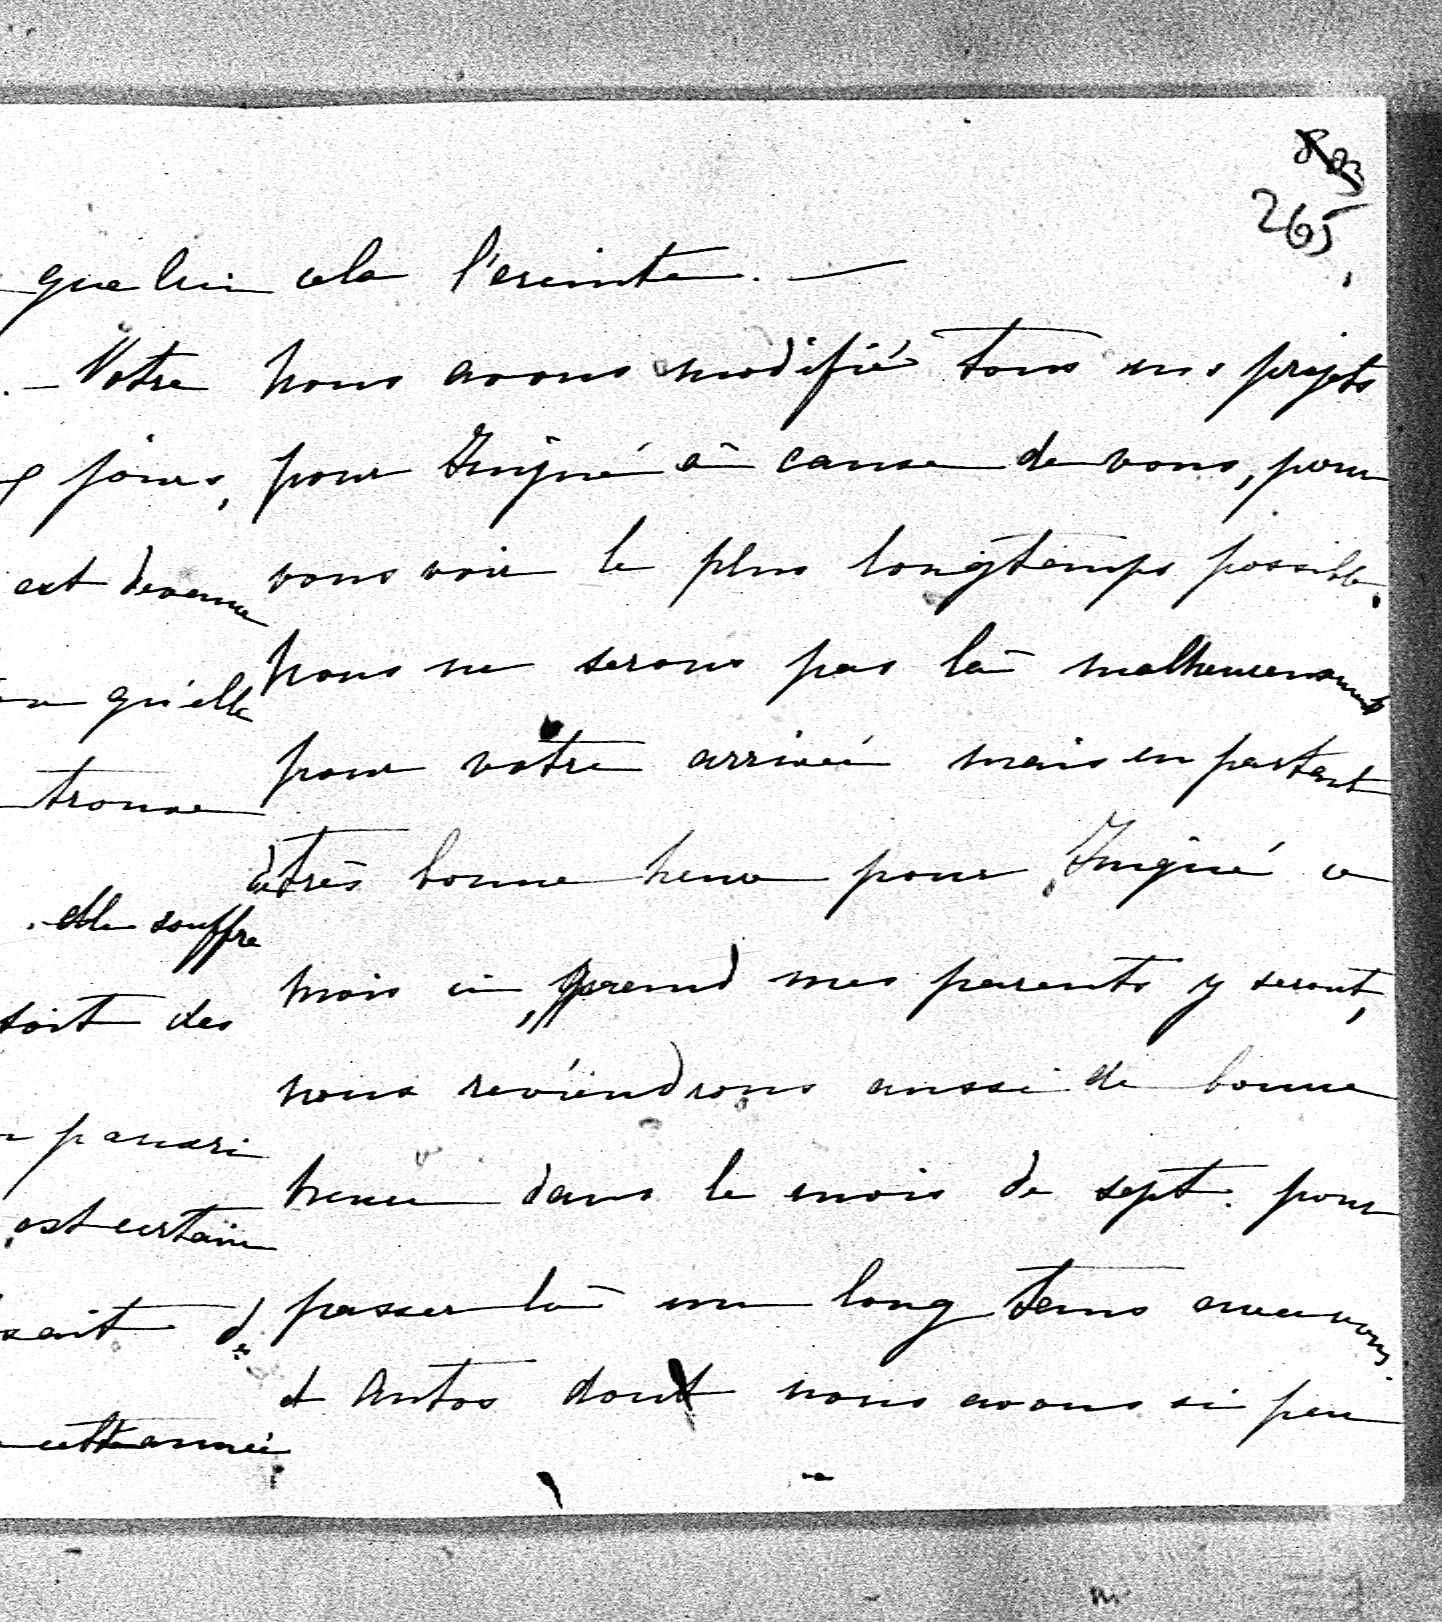 803
265
que lui
. — Votre
jours,
est devenue
qu'elle
trouve
. elle souffre
soit des
panari
est certaine
sait d
cette année
cela l'ereinte. —
nous avons modifié tous nos projets
pour Juigné à cause de vous, pour
vous voir le plus longtemps possible.
nous ne serons pas là malheureusement
pour votre arrivée mais en partant
de très bonne heure pour Juigné ce
mois ci, quand mes parents y seront,
nous reviendrons aussi de bonne
heure dans le mois de sept. pour
passer là un long tems avec vous
et Antos dont nous avons si peu